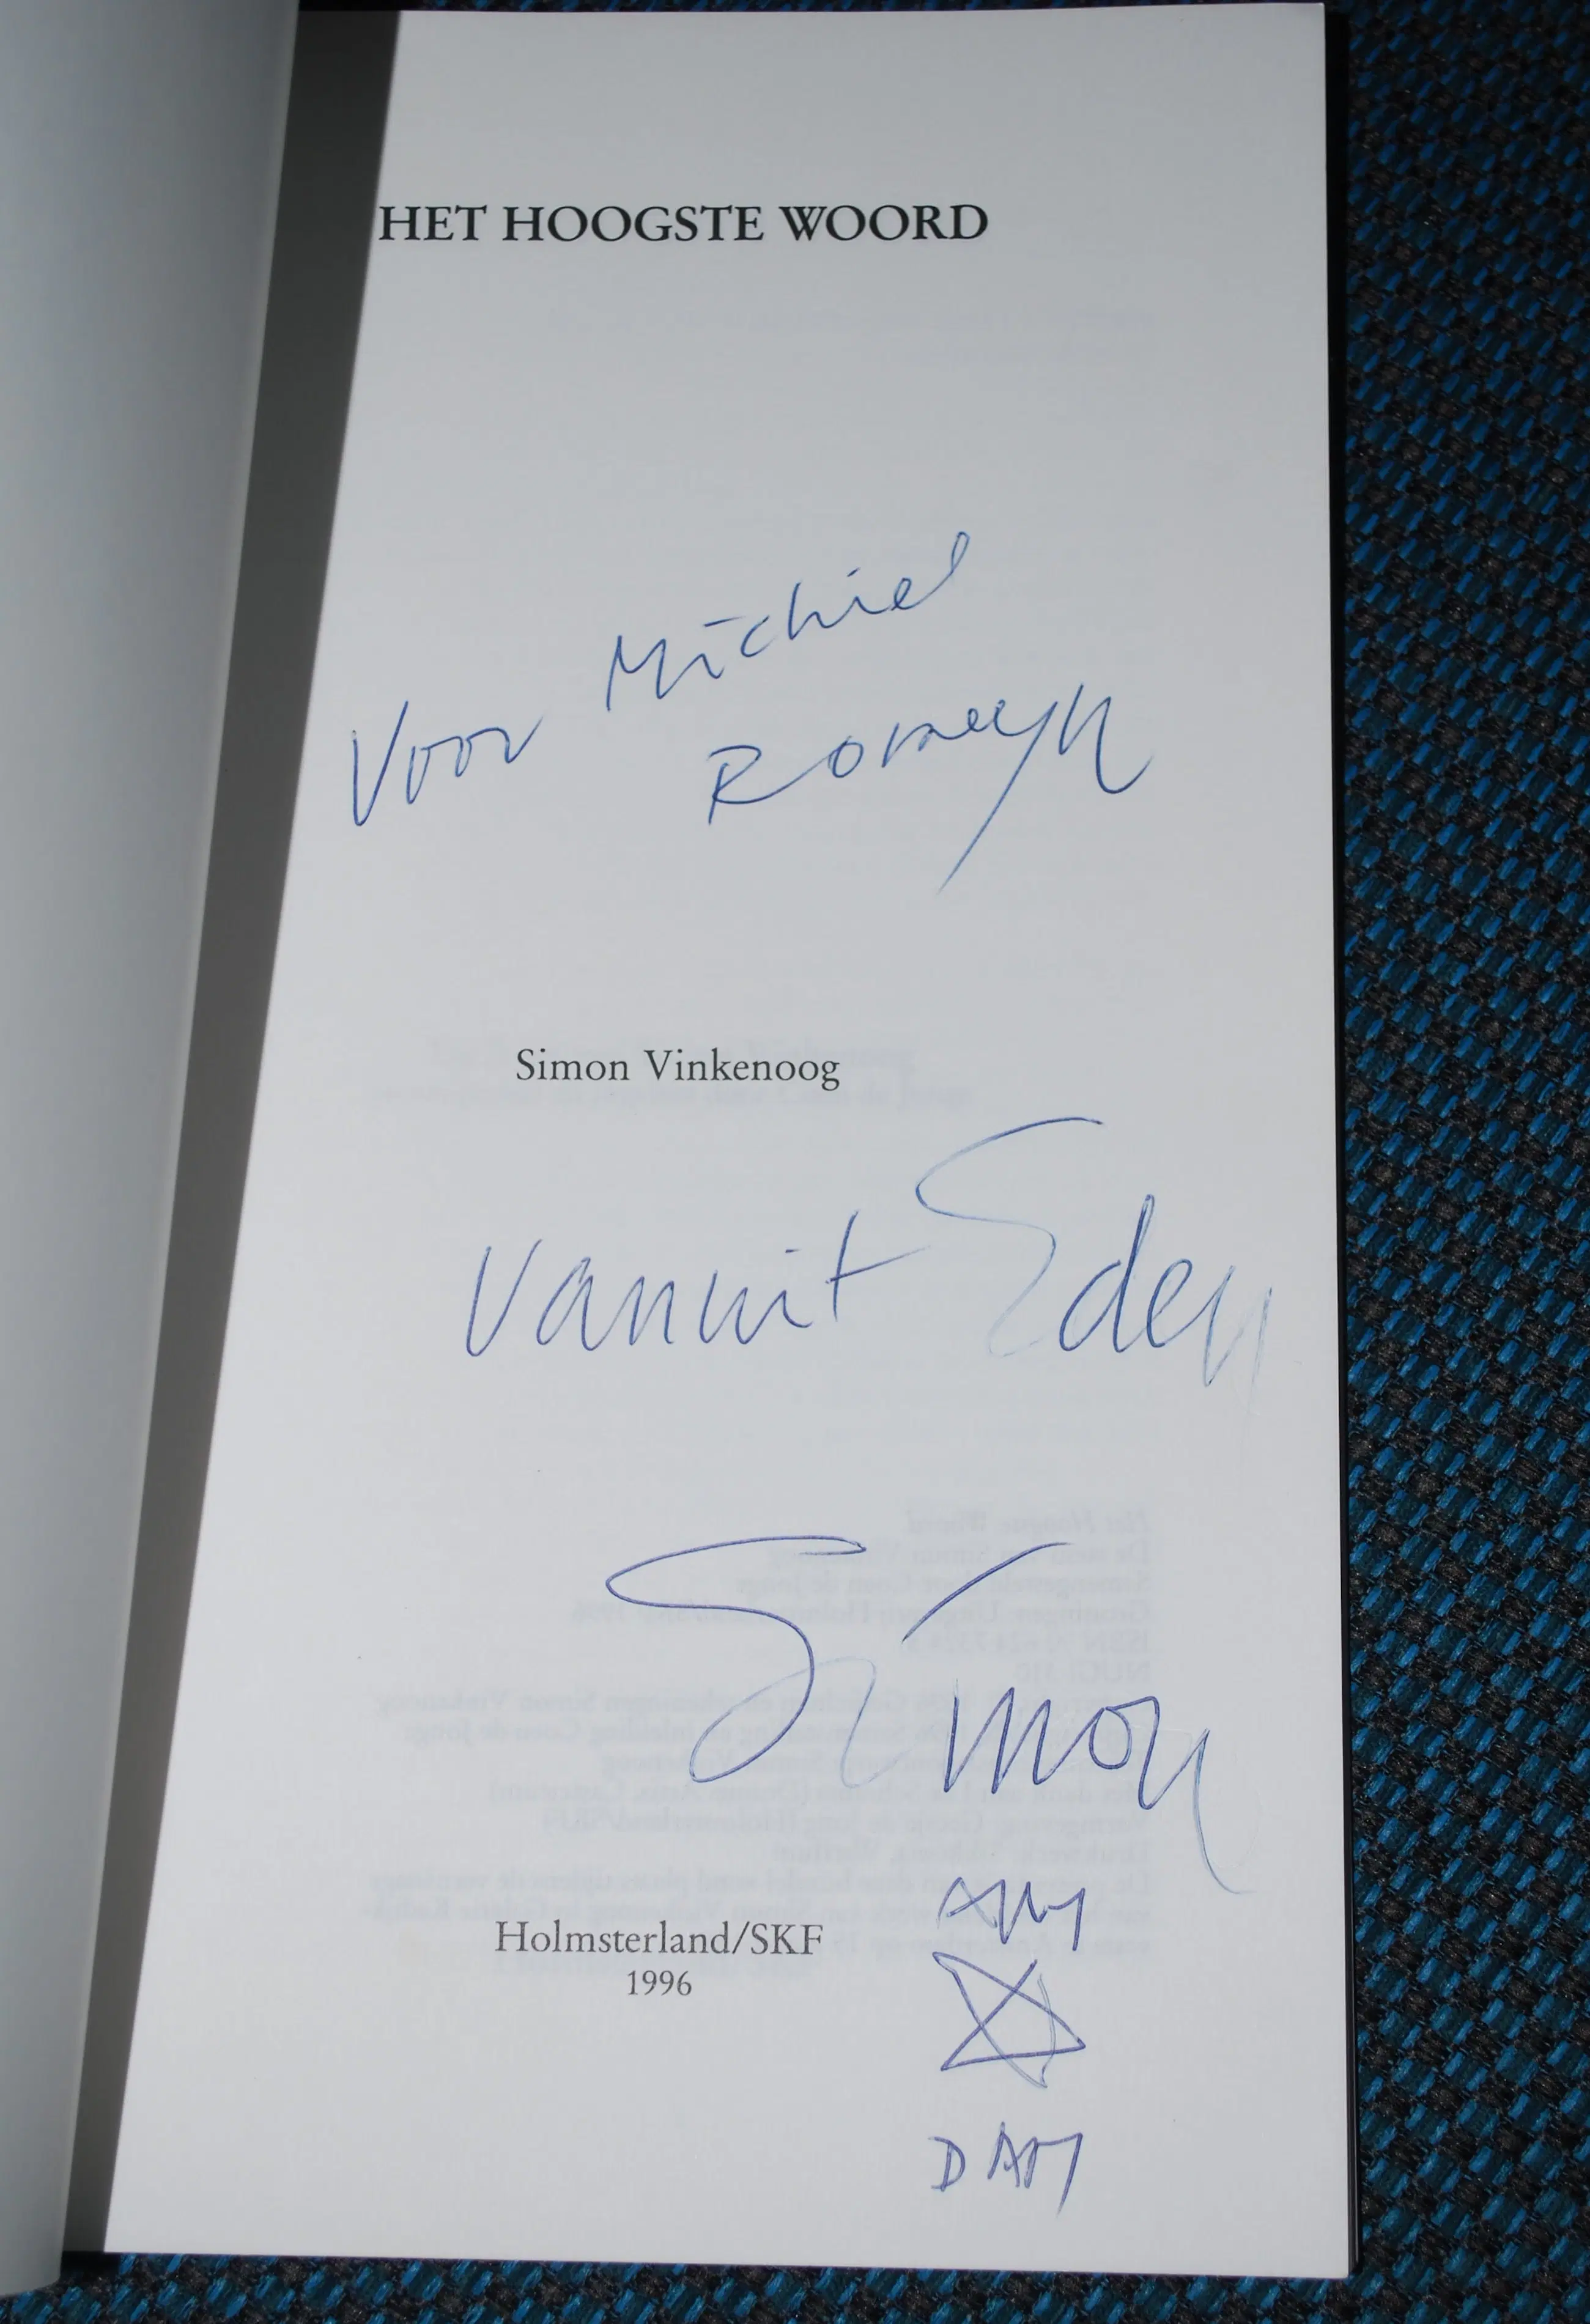 HET HOOGSTE WOORD
Voor Michiel
Romeyn
Simon Vinkenoog
vanuit Eden
Simon
Holmsterland/SKF
1996
AM
DAM